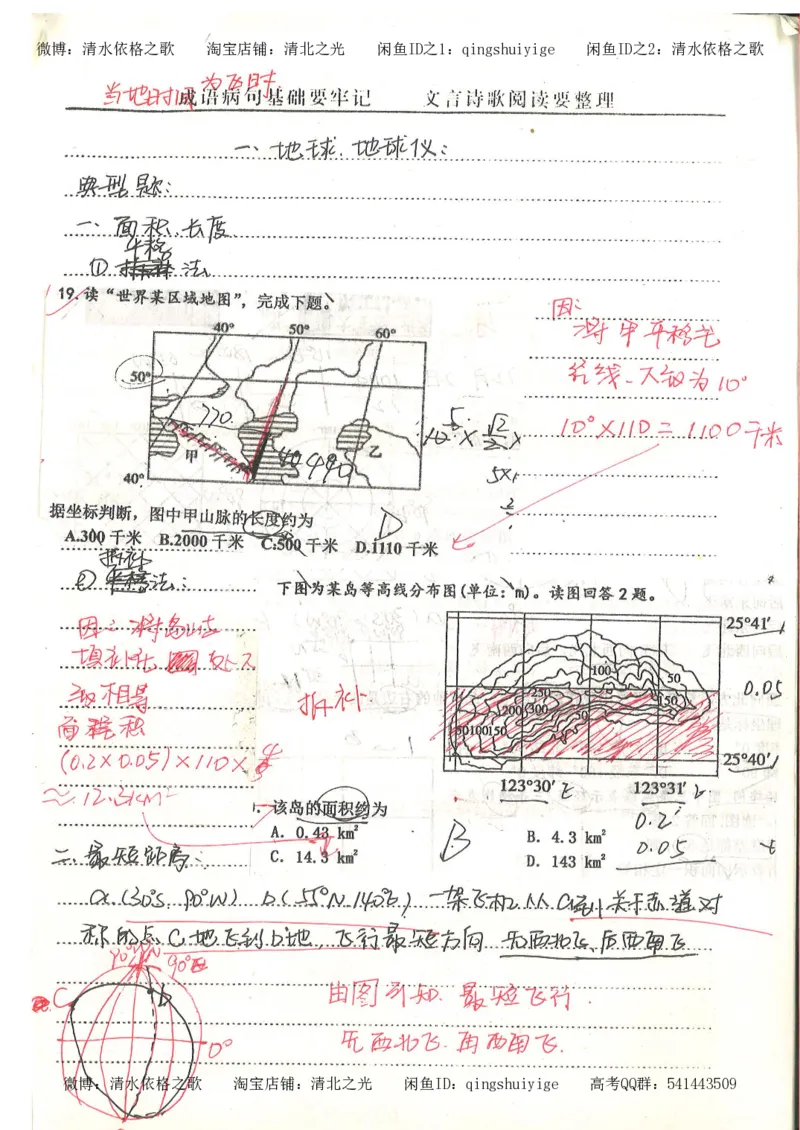 微博：清水依格之歌 淘宝店铺：清北之光 闲鱼ID之1：qingshuiyige 闲鱼ID之2：清水依格之歌
当地时间为瓦时
成语病句基础要牢记 文言诗歌阅读要整理
一、地球、地球仪：
典型题：
一、面积、长度
平移
① 法
19.读“世界某区域地图”，完成下题。
40° 50° 60°
50°
770
甲
乙
40°
440
因：
将甲平移至
经线、大约为10°
10°×110=1100千米
据坐标判断，图中甲山脉的长度约为
D
A.300千米 B.2000千米 C.500千米 D.1110千米
拆补
② 法：
下图为某岛等高线分布图(单位：m)。读图回答2题。
25°41′
100
50
250
150
200
300
50
50100150
25°40′
123°30′E
123°31′
0.05
填补
至
相等
面积
(0.2×0.05)×110×
≈12.3km²
拆补
1. 该岛的面积约为
A. 0.43 km²
B. 4.3 km²
C. 14.3 km²
D. 143 km²
B
0.2
0.05
二、最短距离：
a.(30°S, 90°W) b.(55°N 140°E)，一架飞机从a地关于赤道对
称的点C地飞到b地，飞行最短方向 先西北飞、后西南飞
90°W N
90°E
C
b
0°
由图可知、最短飞行.
先西北飞、再西南飞.
微博：清水依格之歌 淘宝店铺：清北之光 闲鱼ID：qingshuiyige 高考QQ群：541443509